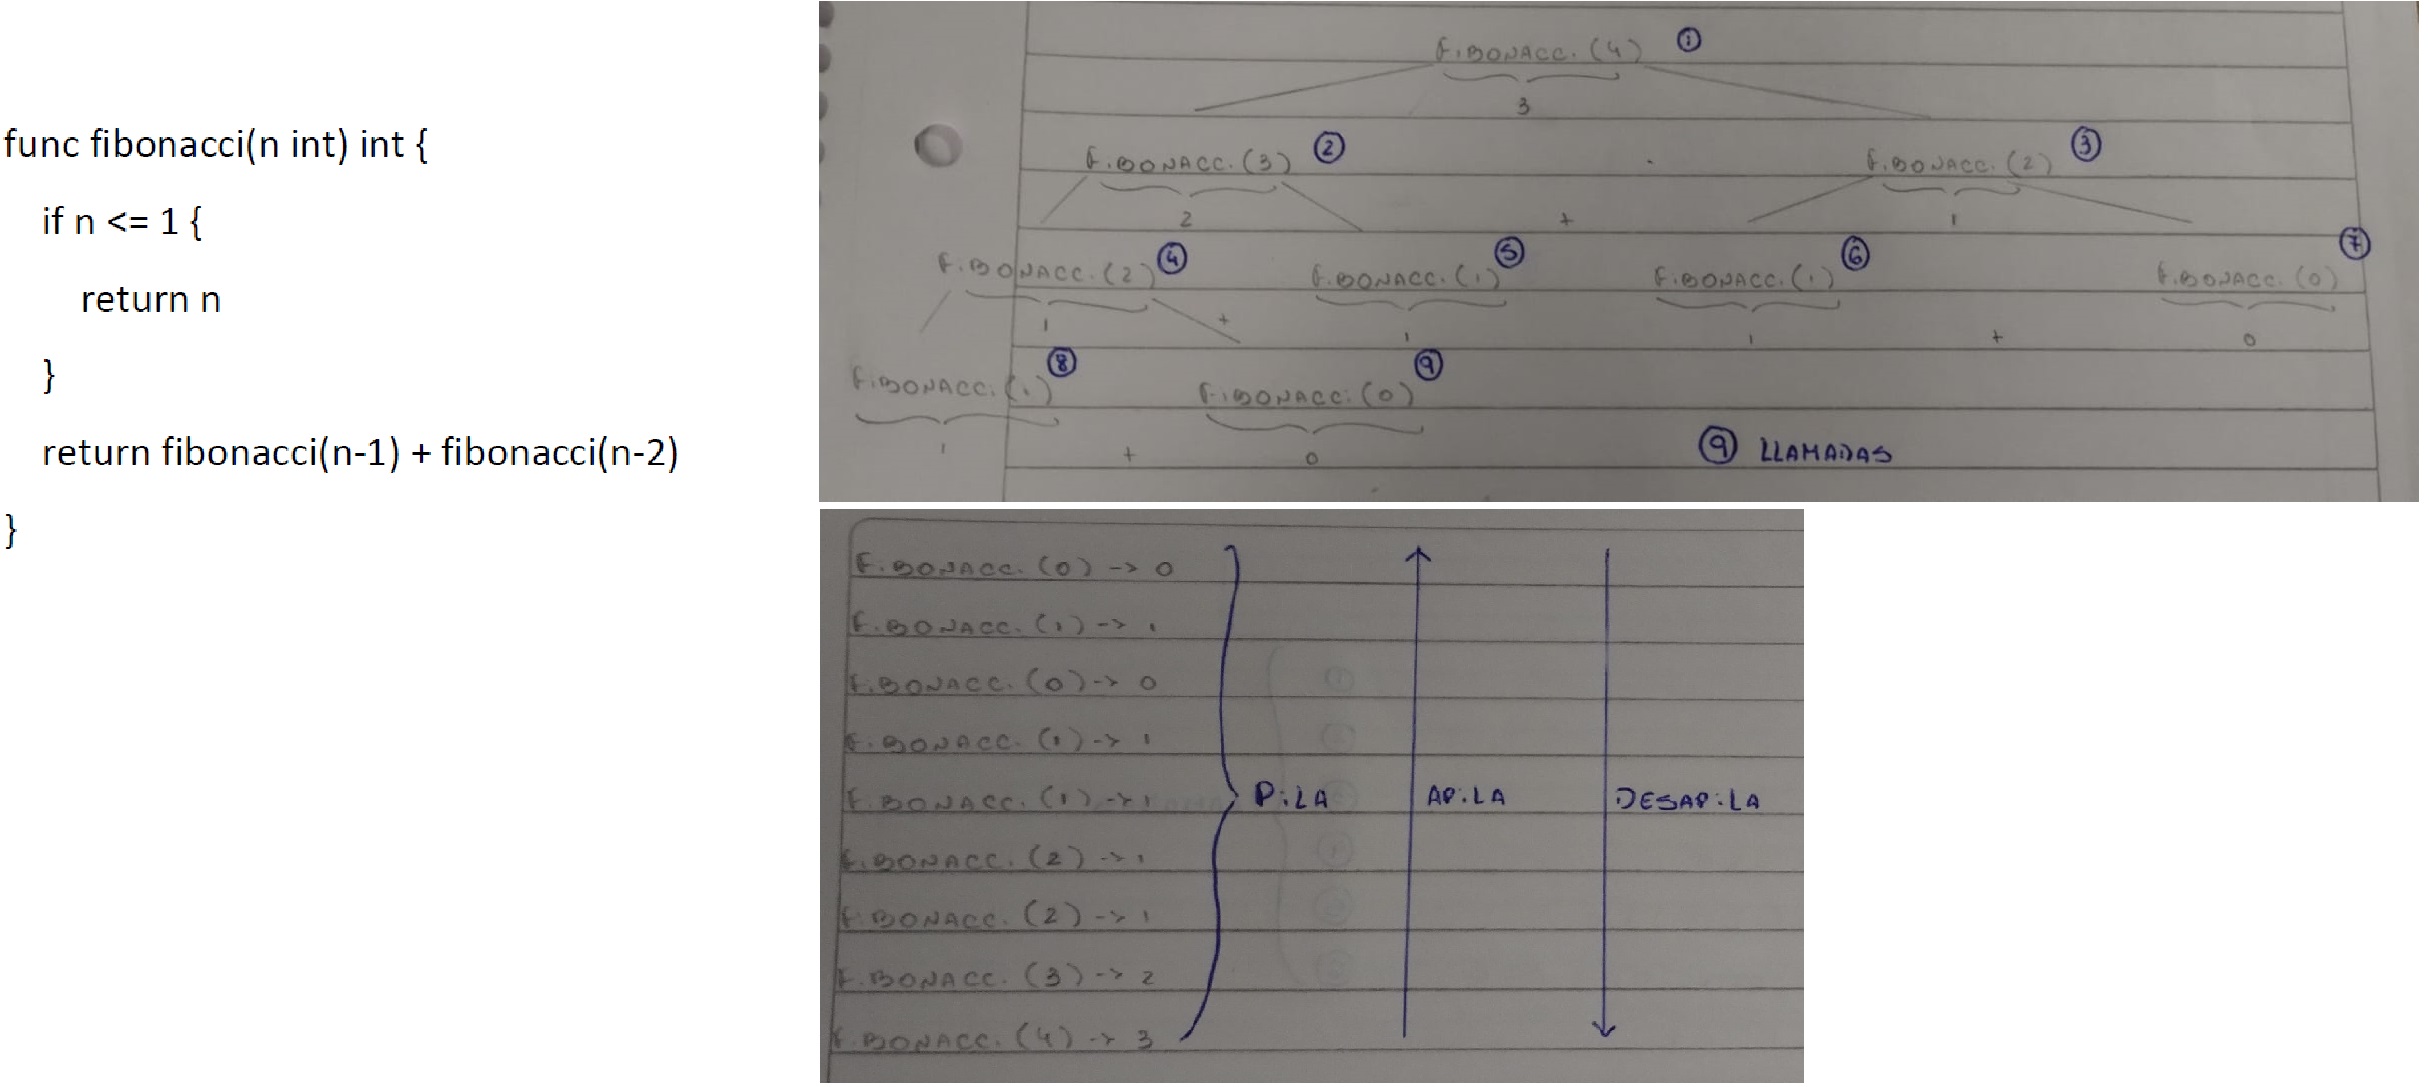 func fibonacci(n int) int {
if n <= 1 {
return n
}
return fibonacci(n-1) + fibonacci(n-2)
}
FIBONACCI (4) ①
3
FIBONACCI (3) ② FIBONACCI (2) ③
2 + 1
FIBONACCI (2) ④ FIBONACCI (1) ⑤ FIBONACCI (1) ⑥ FIBONACCI (0) ⑦
1 + 1 1 + 0
FIBONACCI (1) ⑧ FIBONACCI (0) ⑨
1 + 0
⑨ LLAMADAS
FIBONACCI (0) -> 0
FIBONACCI (1) -> 1
FIBONACCI (0) -> 0
FIBONACCI (1) -> 1
FIBONACCI (1) -> 1 PILA APILA DESAPILA
FIBONACCI (2) -> 1
FIBONACCI (2) -> 1
FIBONACCI (3) -> 2
FIBONACCI (4) -> 3